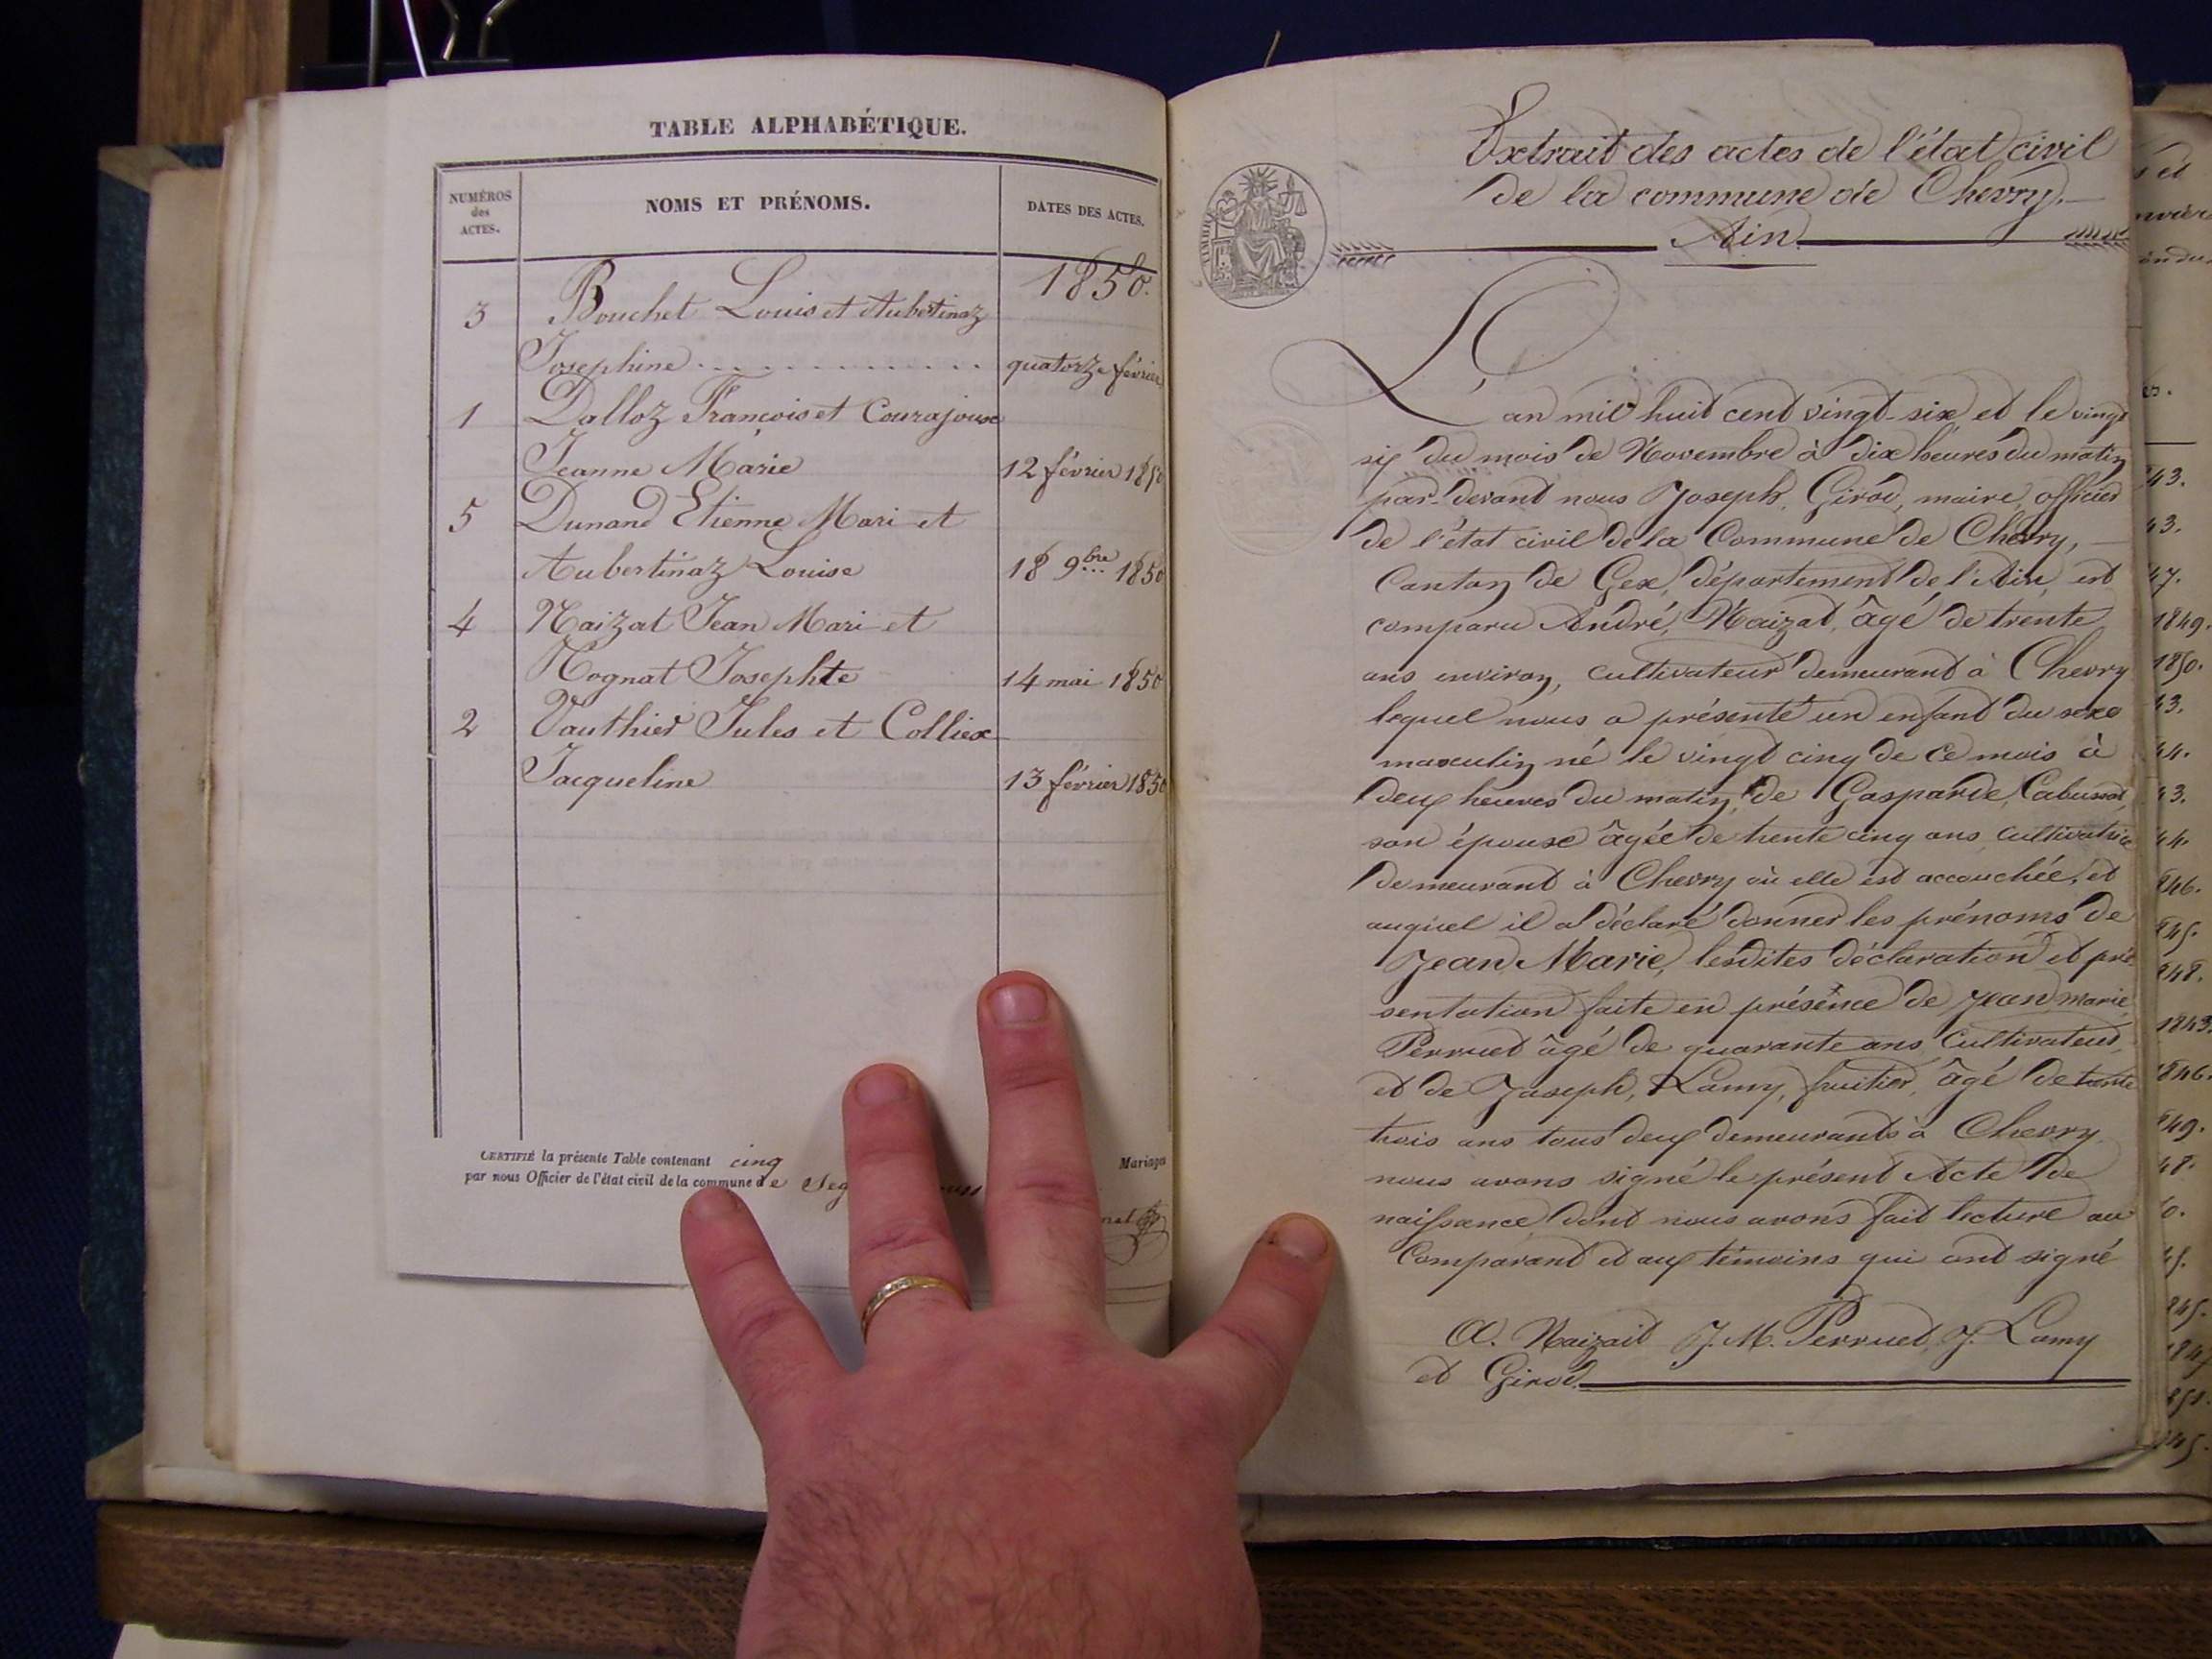 TABLE ALPHABÉTIQUE.
NUMÉROS
des
ACTES.
NOMS ET PRÉNOMS.
DATES DES ACTES.
1850.
3 Bouchet Louis et Aubertinaz
Josephine . . . . . . . . . . . . quatorze février
1 Dalloz François et Courajoux
Jeanne Marie 12 février 1850
5 Dunand Etienne Mari et
Aubertinaz Louise 18 9bre 1850
4 Naizat Jean Mari et
Nognat Josephte 14 mai 1850
2 Vauthier Jules et Colliex
Jacqueline 13 février 1850
CERTIFIÉ la présente Table contenant cinq Mariages
par nous Officier de l'état civil de la commune de Seg
Extrait des actes de l'état civil
de la commune de Chevry.
Ain
TIMBRE
L'an mil huit cent vingt-six et le vingt
six du mois de Novembre à dix heures du matin
par-devant nous Joseph, Girod, maire, officier
de l'état civil de la Commune de Chevry,
Canton de Gex, département de l'Ain, est
comparu André, Naizat, âgé de trente
ans environ, cultivateur demeurant à Chevry
lequel nous a présenté un enfant du sexe
masculin né le vingt cinq de ce mois à
deux heures du matin, de Gasparde, Cabussat,
son épouse âgée de trente cinq ans, cultivatrice
demeurant à Chevry où elle est accouchée, et
auquel il a déclaré donner les prénoms de
Jean Marie, lesdites déclaration et pré-
sentation faite en présence de Jean marie
Perruet âgé de quarante ans, Cultivateur,
et de Joseph, Lamy, fruitier, âgé de trente
trois ans tous deux demeurants à Chevry
nous avons signé le présent Acte de
naissance, dont nous avons fait lecture au
Comparant et aux témoins qui ont signé
A. Naizait J. M. Perruet, J. Lamy
et Girod.
43.
43.
47.
1849.
1850.
43.
44.
43.
44.
846.
845.
848.
1843.
1846.
849.
48.
845.